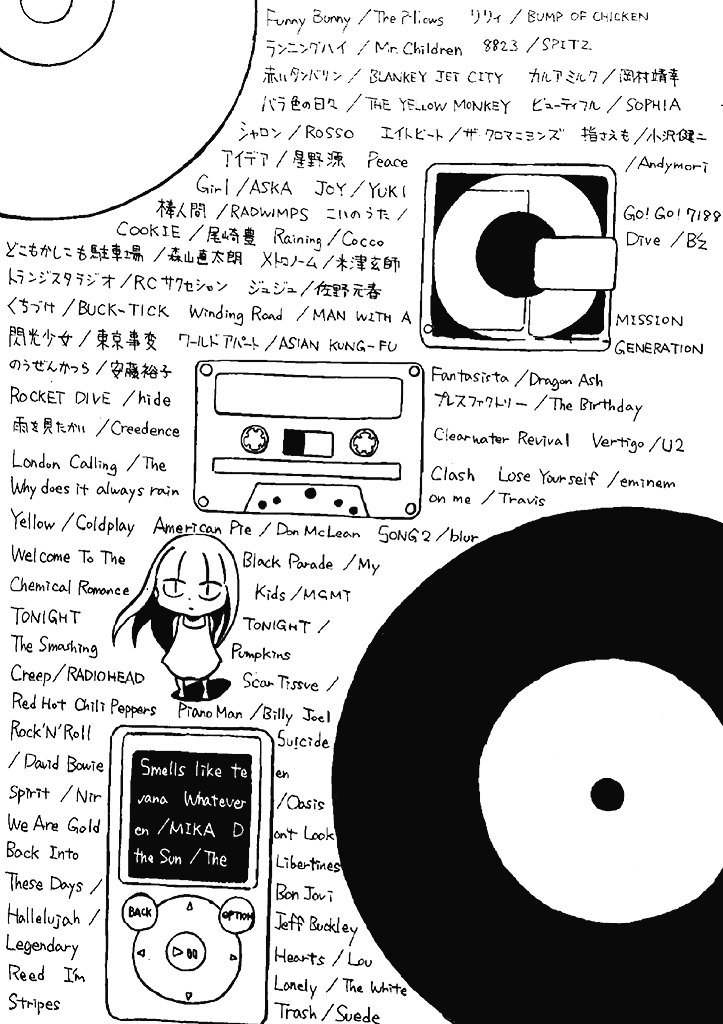 Funny Bunny / The Pillows リリィ / BUMP OF CHICKEN
ランニングハイ / Mr. Children 8823 / SPITZ
赤いタンバリン / BLANKEY JET CITY カルアミルク / 岡村靖幸
バラ色の日々 / THE YELLOW MONKEY ビューティフル / SOPHIA
シャロン / ROSSO エイトビート / ザ・クロマニヨンズ 指さえも / 小沢健二
アイデア / 星野源 Peace / Andymori
Girl / ASKA JOY / YUKI
棒人間 / RADWIMPS こいのうた / GO! GO! 7188
COOKIE / 尾崎豊 Raining / Cocco Dive / B'z
どこもかしこも駐車場 / 森山直太朗 メトロノーム / 米津玄師
トランジスタラジオ / RCサクセション ジュジュ / 佐野元春
くちづけ / BUCK-TICK Winding Road / MAN WITH A MISSION
閃光少女 / 東京事変 ワールドアパート / ASIAN KUNG-FU GENERATION
のうぜんかつら / 安藤裕子 Fantasista / Dragon Ash
ROCKET DIVE / hide プレスファクトリー / The Birthday
雨を見たかい / Creedence Clearwater Revival Vertigo / U2
London Calling / The Clash Lose Yourself / eminem
Why does it always rain on me / Travis
Yellow / Coldplay American Pie / Don McLean SONG2 / blur
Welcome To The Black Parade / My
Chemical Romance Kids / MGMT
TONIGHT TONIGHT /
The Smashing Pumpkins
Creep / RADIOHEAD Scar Tissue /
Red Hot Chili Peppers Piano Man / Billy Joel
Rock'N'Roll Suicide
/ David Bowie Smells like te en
Spirit / Nir vana Whatever / Oasis
We Are Gold en / MIKA D ont Look
Back Into the Sun / The Libertines
These Days / Bon Jovi
Hallelujah / Jeff Buckley
Legendary Hearts / Lou
Reed I'm Lonely / The White
Stripes Trash / Suede
BACK
OPTION